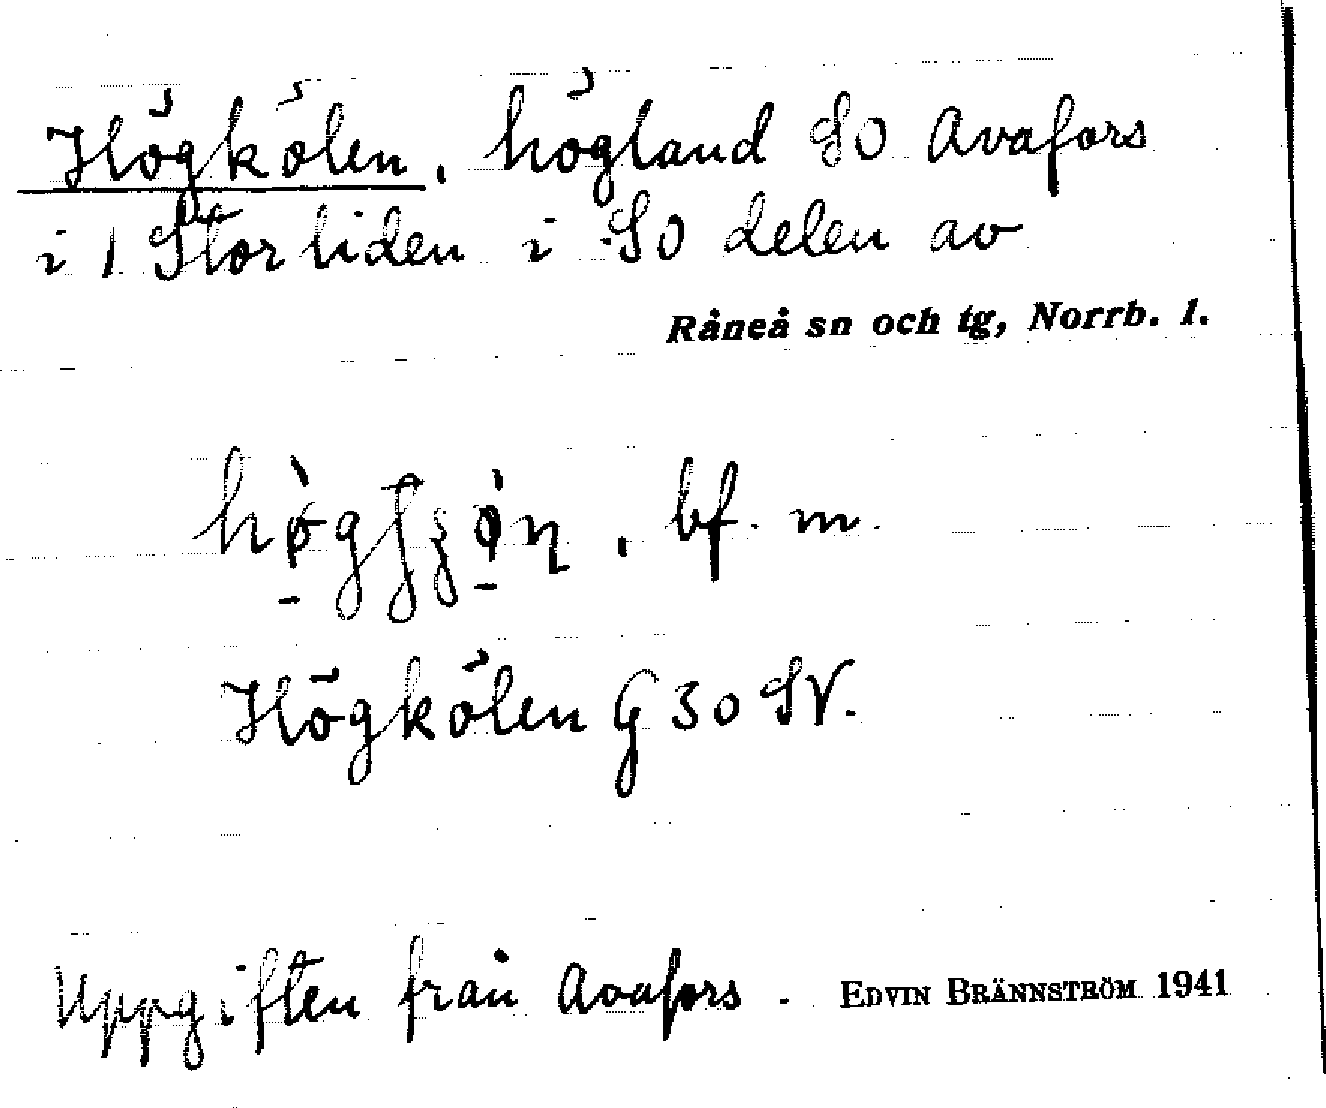 Högkölen, högland SO Avafors
i 1 Storliden i SO delen av
Råneå sn och tg, Norrb. l.
bf. m.
Högkölen G 30 SV.
Uppgiften från Avafors. EDVIN BRÄNNSTRÖM 1941